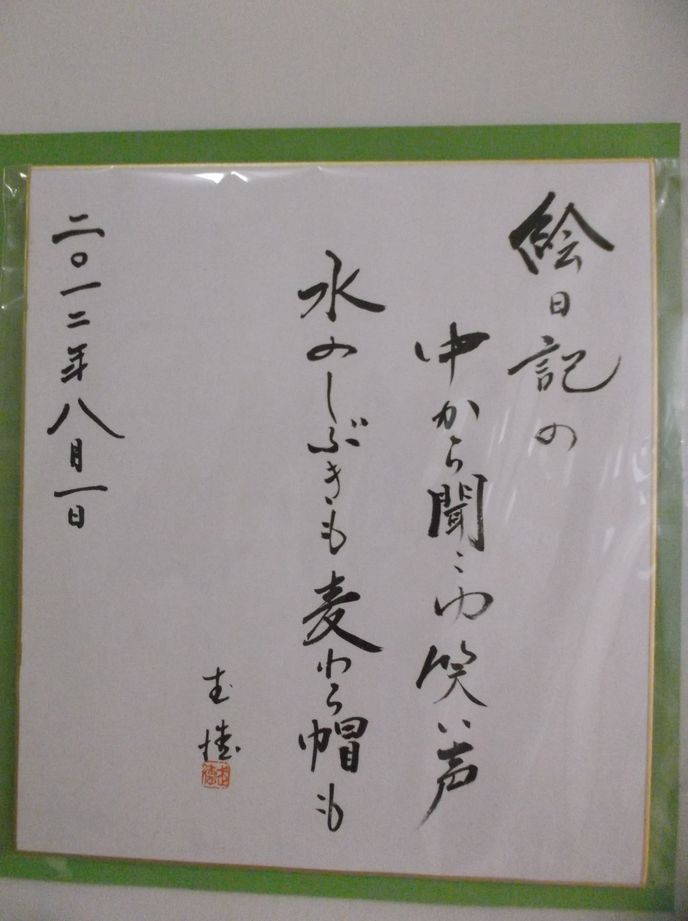 絵日記の
中から聞こゆ笑い声
水のしぶきも麦わら帽も
二〇一二年八月一日